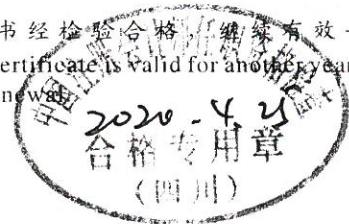 书经检验合格，继续有效一
ertificate is valid for another year
newal.
2020.4.25
合格专用章
(四川)